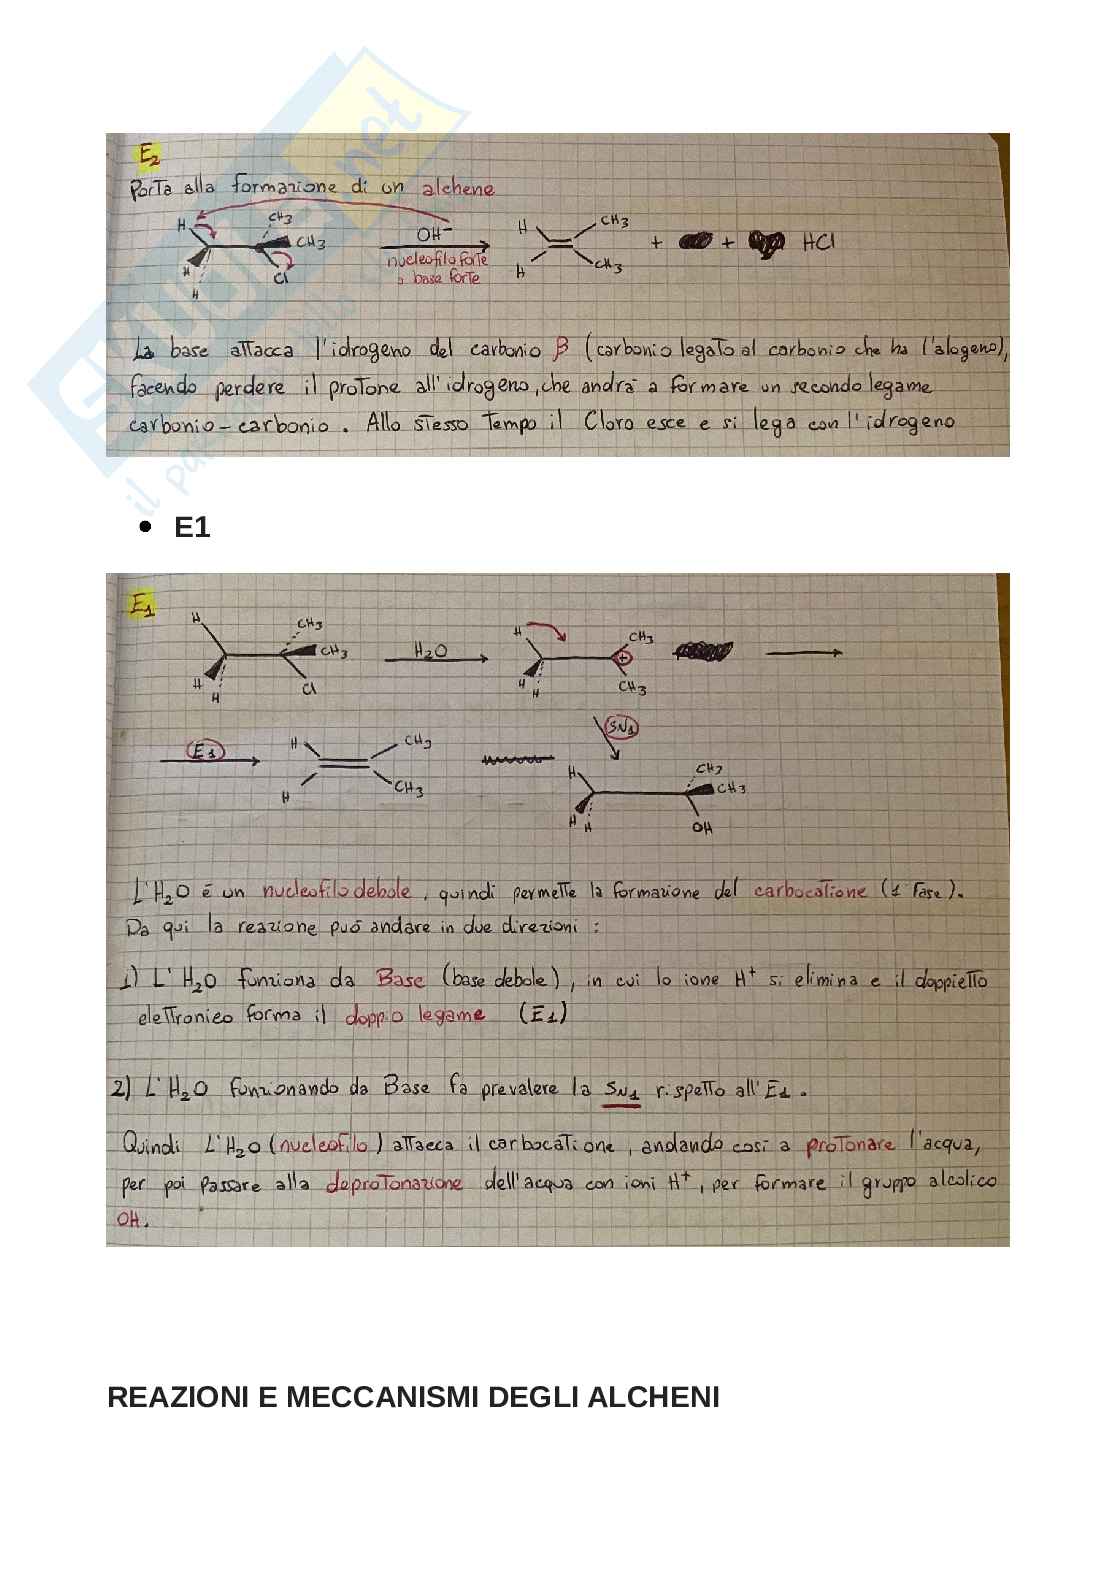 E2
Porta alla formazione di un alchene
H
CH3
CH3
H
H
Cl
OH-
nucleofilo forte
o base forte
H
CH3
H
CH3
+ + HCl
La base attacca l'idrogeno del carbonio β (carbonio legato al carbonio che ha l'alogeno),
facendo perdere il protone all'idrogeno, che andrà a formare un secondo legame
carbonio-carbonio. Allo stesso tempo il Cloro esce e si lega con l'idrogeno
SKUOLA.net
E1
E1
H
CH3
CH3
H
H
Cl
H2O
H
CH3
+
H
H
CH3
E1
H
CH3
H
CH3
SN1
H
CH3
CH3
H
H
OH
L'H2O é un nucleofilo debole, quindi permette la formazione del carbocatione (1 Fase).
Da qui la reazione può andare in due direzioni :
1) L'H2O funziona da Base (base debole), in cui lo ione H+ si elimina e il doppietto
elettronico forma il doppio legame (E1)
2) L'H2O funzionando da Base fa prevalere la SN1 rispetto all'E1.
Quindi L'H2O (nucleofilo) attacca il carbocatione, andando così a protonare l'acqua,
per poi passare alla deprotonazione dell'acqua con ioni H+, per formare il gruppo alcolico
OH.
REAZIONI E MECCANISMI DEGLI ALCHENI